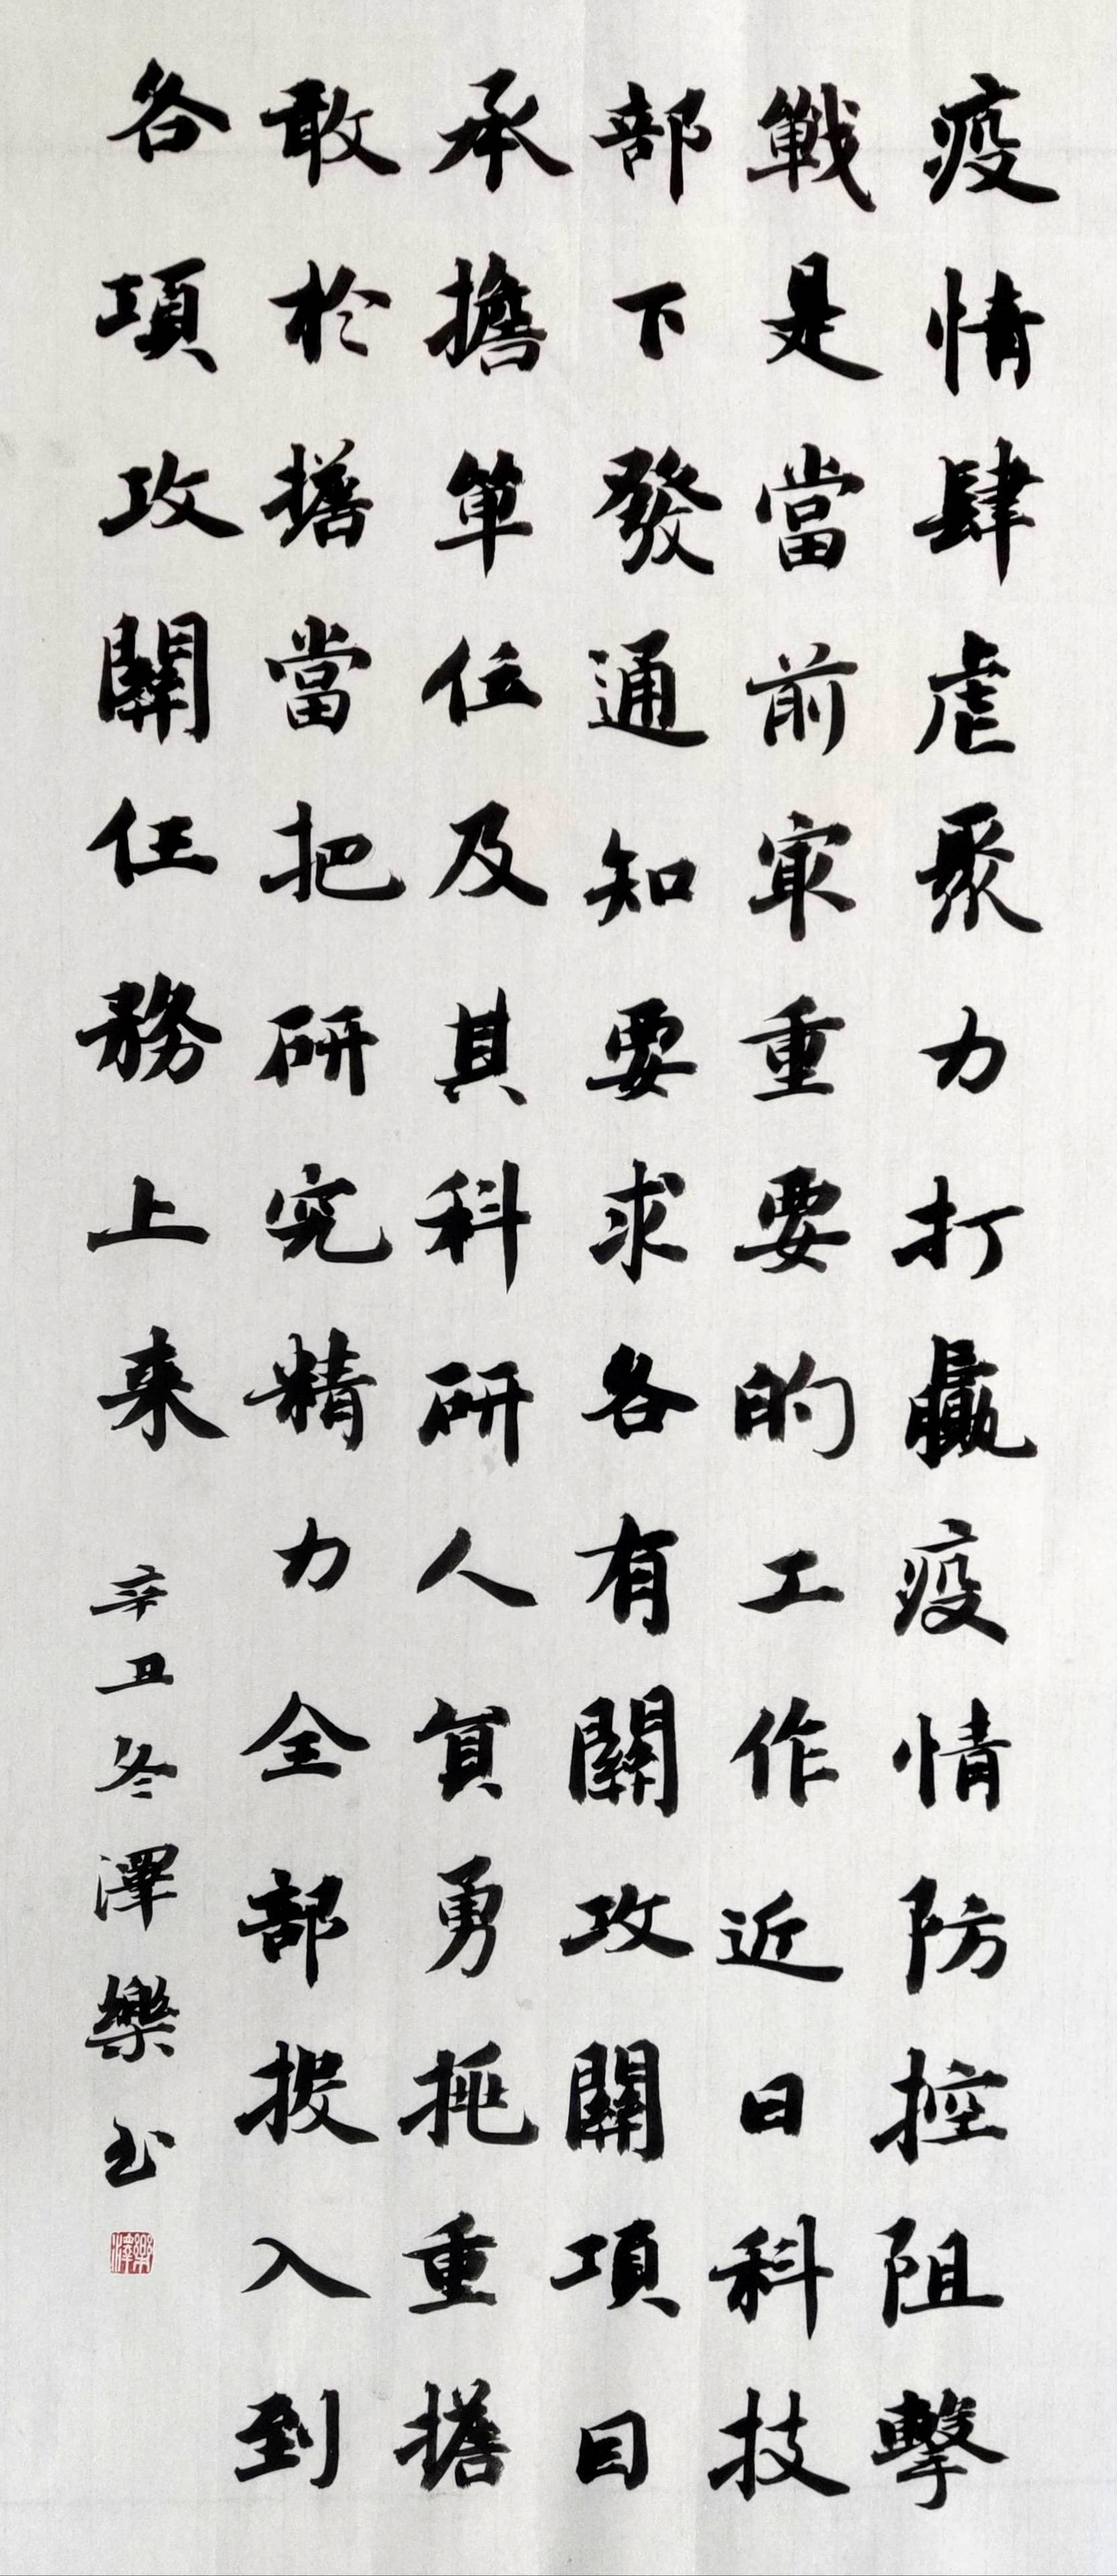 疫情肆虐聚力打贏疫情防控阻擊
戰是當前冣重要的工作近日科技
部下發通知要求各有關攻關項目
承擔單位及其科研人員勇挑重擔
敢於擔當把研究精力全部投入到
各項攻關任務上來
辛丑冬澤樂書
樂澤